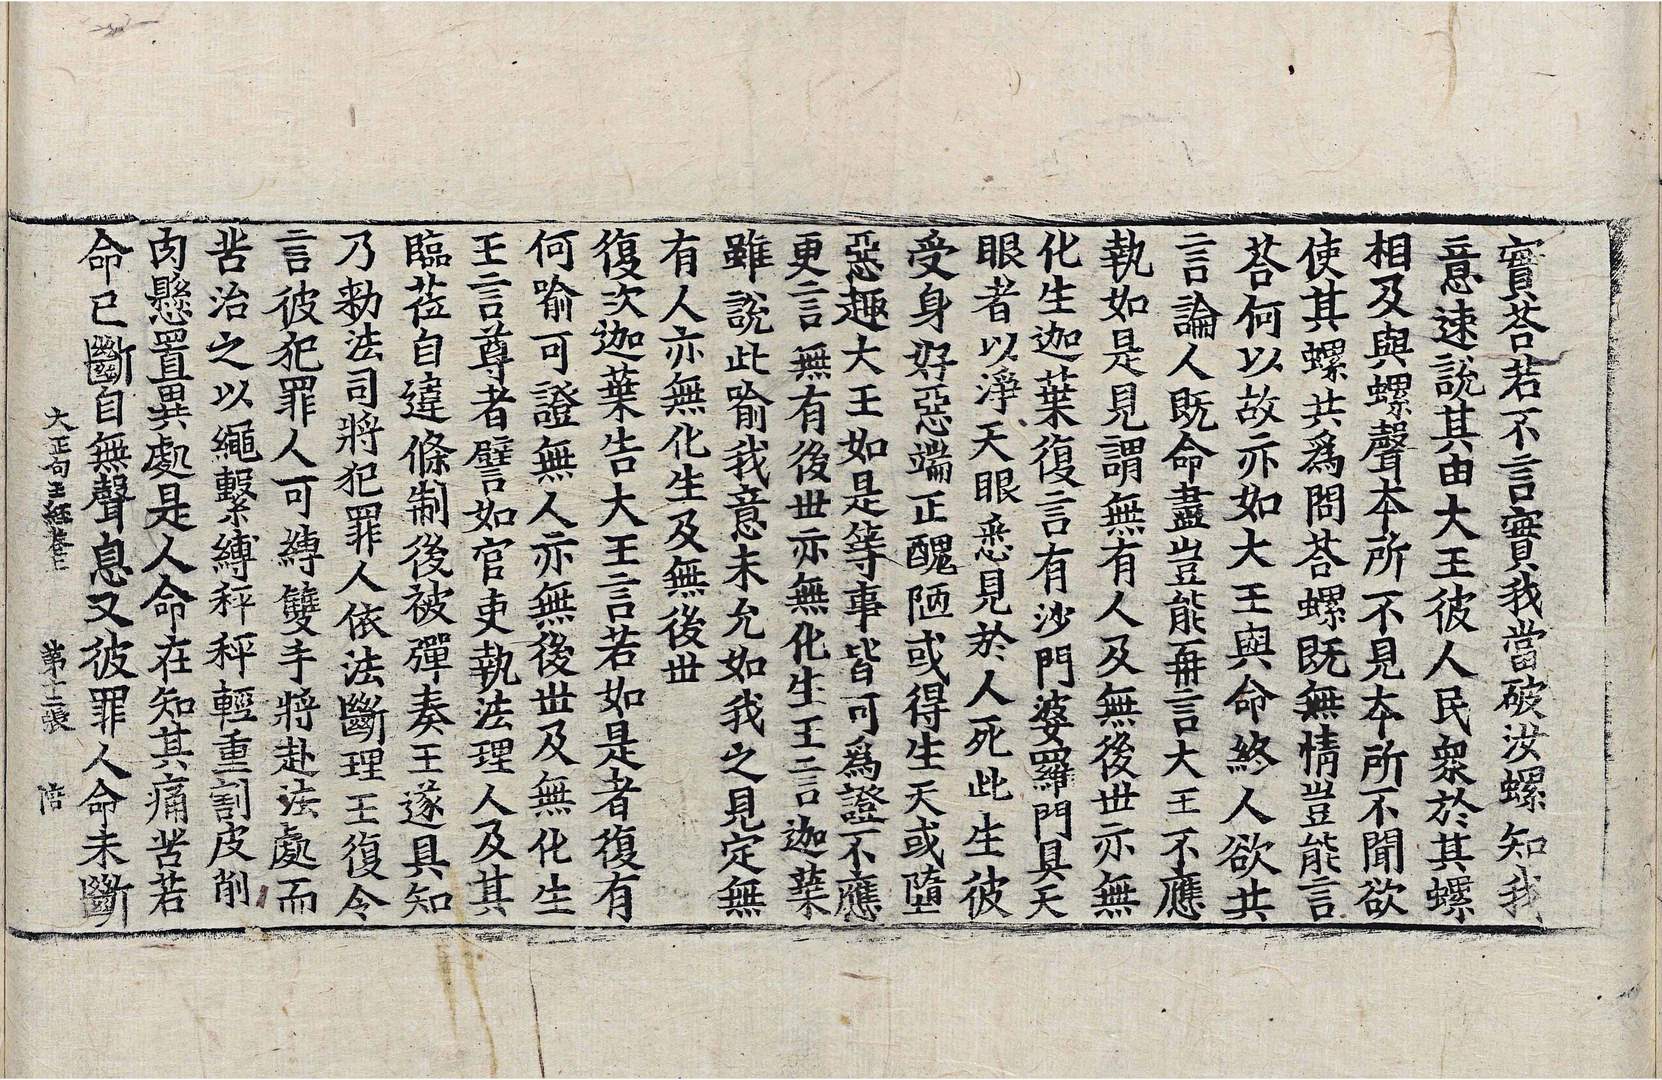 實荅若不言實我當破汝螺知我
意速說其由大王彼人民衆於其螺
相及與螺聲本所不見本所不聞欲
使其螺共爲問荅螺既無情豈能言
荅何以故亦如大王與命終人欲共
言論人既命盡豈能再言大王不應
執如是見謂無有人及無後世亦無
化生迦葉復言有沙門婆羅門具天
眼者以淨天眼悉見於人死此生彼
受身好惡端正醜陋或得生天或墮
惡趣大王如是等事皆可爲證不應
更言無有後世亦無化生王言迦葉
雖說此喻我意未允如我之見定無
有人亦無化生及無後世
復次迦葉告大王言若如是者復有
何喻可證無人亦無後世及無化生
王言尊者譬如官吏執法理人及其
臨莅自違條制後被彈奏王遂具知
乃勑法司將犯罪人依法斷理王復令
言彼犯罪人可縛雙手將赴法處而
苦治之以繩繫縛秤秤輕重割皮削
肉懸置異處是人命在知其痛苦若
命已斷自無聲息又彼罪人命未斷
大正句王經卷上 第十二張